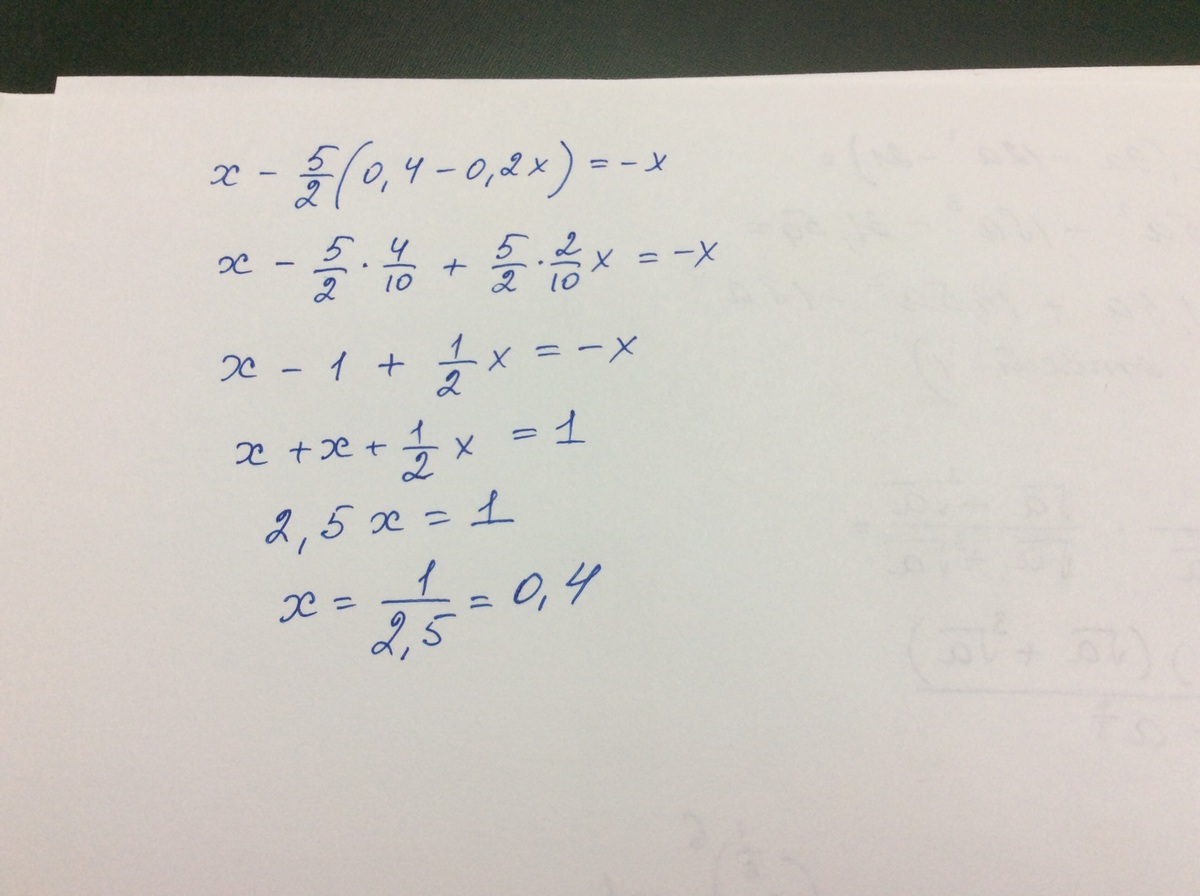 x - 5/2 (0,4 - 0,2x) = -x
x - 5/2 · 4/10 + 5/2 · 2/10 x = -x
x - 1 + 1/2 x = -x
x + x + 1/2 x = 1
2,5 x = 1
x = 1/2,5 = 0,4